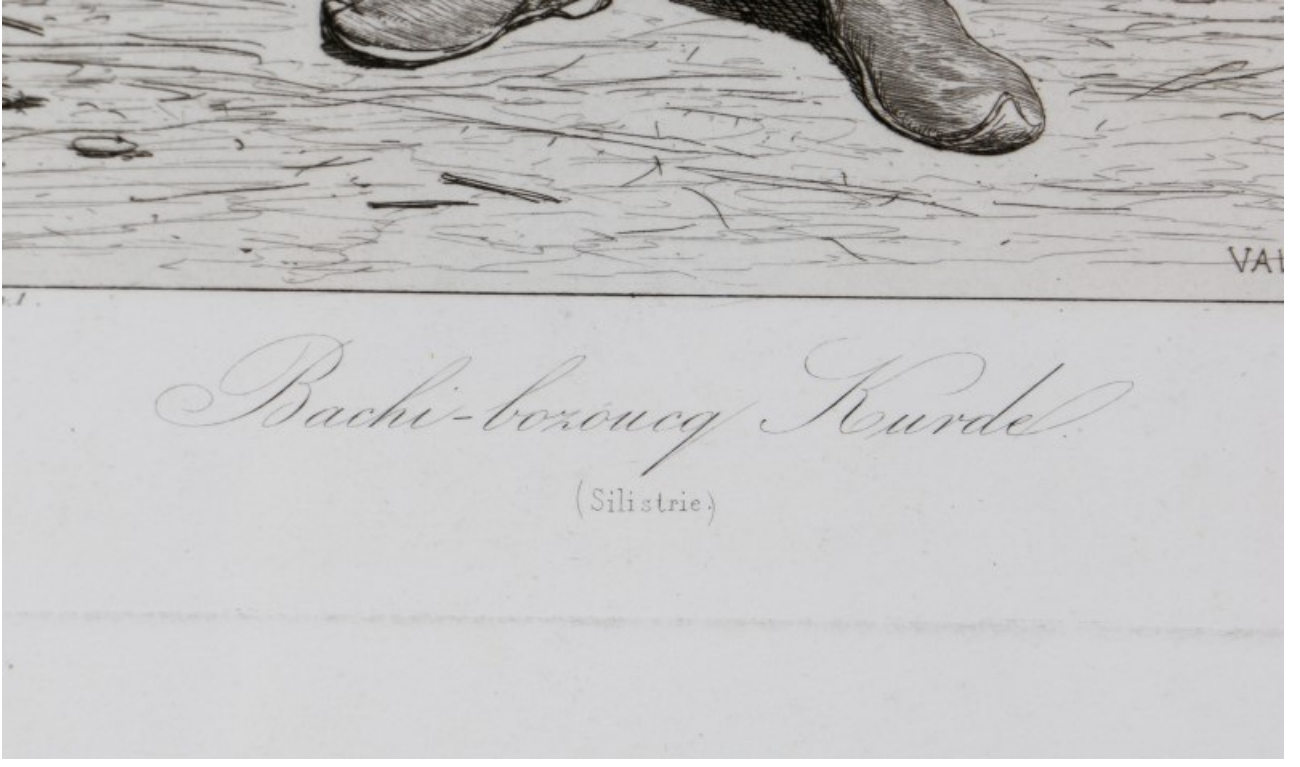 VAL
Bachi-bozoucq Kurde.
(Silistrie.)